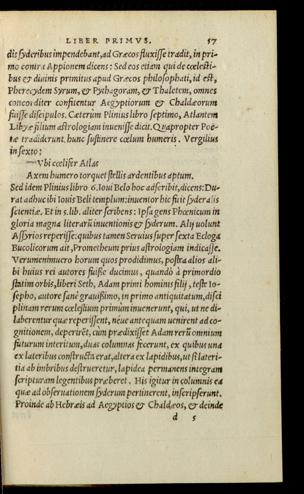 LIBER PRIMVS. 57
ctis syderibus impendebant, ad Græcos fluxisse tradit, in pri-
mo contra Appionem dicens: Sed eos etiam qui de cœlesti-
bus & diuinis primitus apud Græcos philosophati, id est,
Pherecydem Syrum, & Pythagoram, & Thaletem, omnes
concorditer confitentur Aegyptiorum & Chaldæorum
fuisse discipulos. Cæterum Plinius libro septimo, Atlantem
Libyæ filium astrologiam inuenisse dicit. Quapropter Poe-
tæ tradiderunt, hunc sustinere cœlum humeris. Vergilius
in sexto:
Vbi cœlifer Atlas
Axem humero torquet stellis ardentibus aptum.
Sed idem Plinius libro 6. Ioui Belo hoc adscribit, dicens: Du-
rat adhuc ibi Iouis Beli templum: inuentor hic fuit syderalis
scientiæ. Et in 5. lib. aliter scribens: Ipsa gens Phœnicum in
gloria magna literarū inuentionis & syderum. Alij uolunt
Assyrios reperisse: quibus tamen Seruius super sexta Ecloga
Bucolicorum ait, Prometheum prius astrologiam indicasse.
Verumenimuero horum quos prodidimus, postra alios ali-
bi huius rei autores fuisse ducimus, quando à primordio
statim orbis, liberi Seth, Adam primi hominis filij, teste Io-
sepho, autore sanè grauissimo, in primo antiquitatum, disci
plinam rerum cœlestium primùm inuenerunt, qui, ut ne di-
laberentur quæ reperissent, néue antequam uenirent ad co-
gnitionem, deperirēt, cùm prædixisset Adam rerū omnium
futurum interitum, duas columnas fecerunt, ex quibus una
ex lateribus constructa erat, altera ex lapidibus, ut si lateri-
tia ab imbribus destrueretur, lapidea permanens integram
scripturam legentibus præberet. His igitur in columnis ea
quæ ad obseruationem syderum pertinerent, inscripserunt.
Proinde ab Hebræis ad Aegyptios & Chaldæos, & deinde
d 5